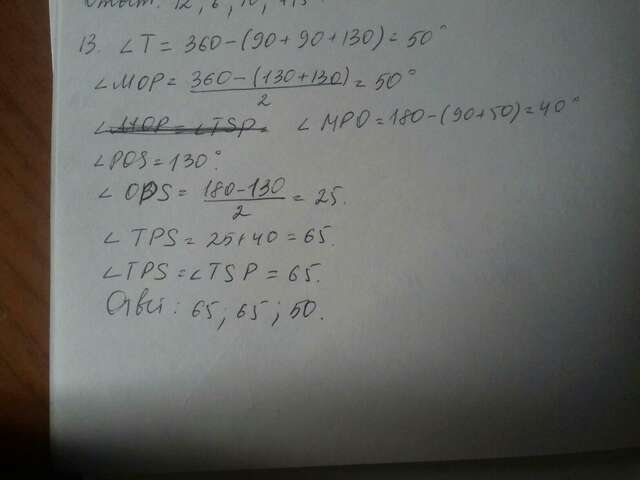 12, 6, 10,
13. ∠T = 360-(90+90+130)=50°
∠MOP= 360-(130+130)/2 = 50°
∠MOP = ∠TSP. ∠MPO=180-(90+50)=40°
∠POS=130°.
∠OPS= 180-130/2 = 25.
∠TPS=25+40=65.
∠TPS=∠TSP=65.
Ответ: 65; 65; 50.